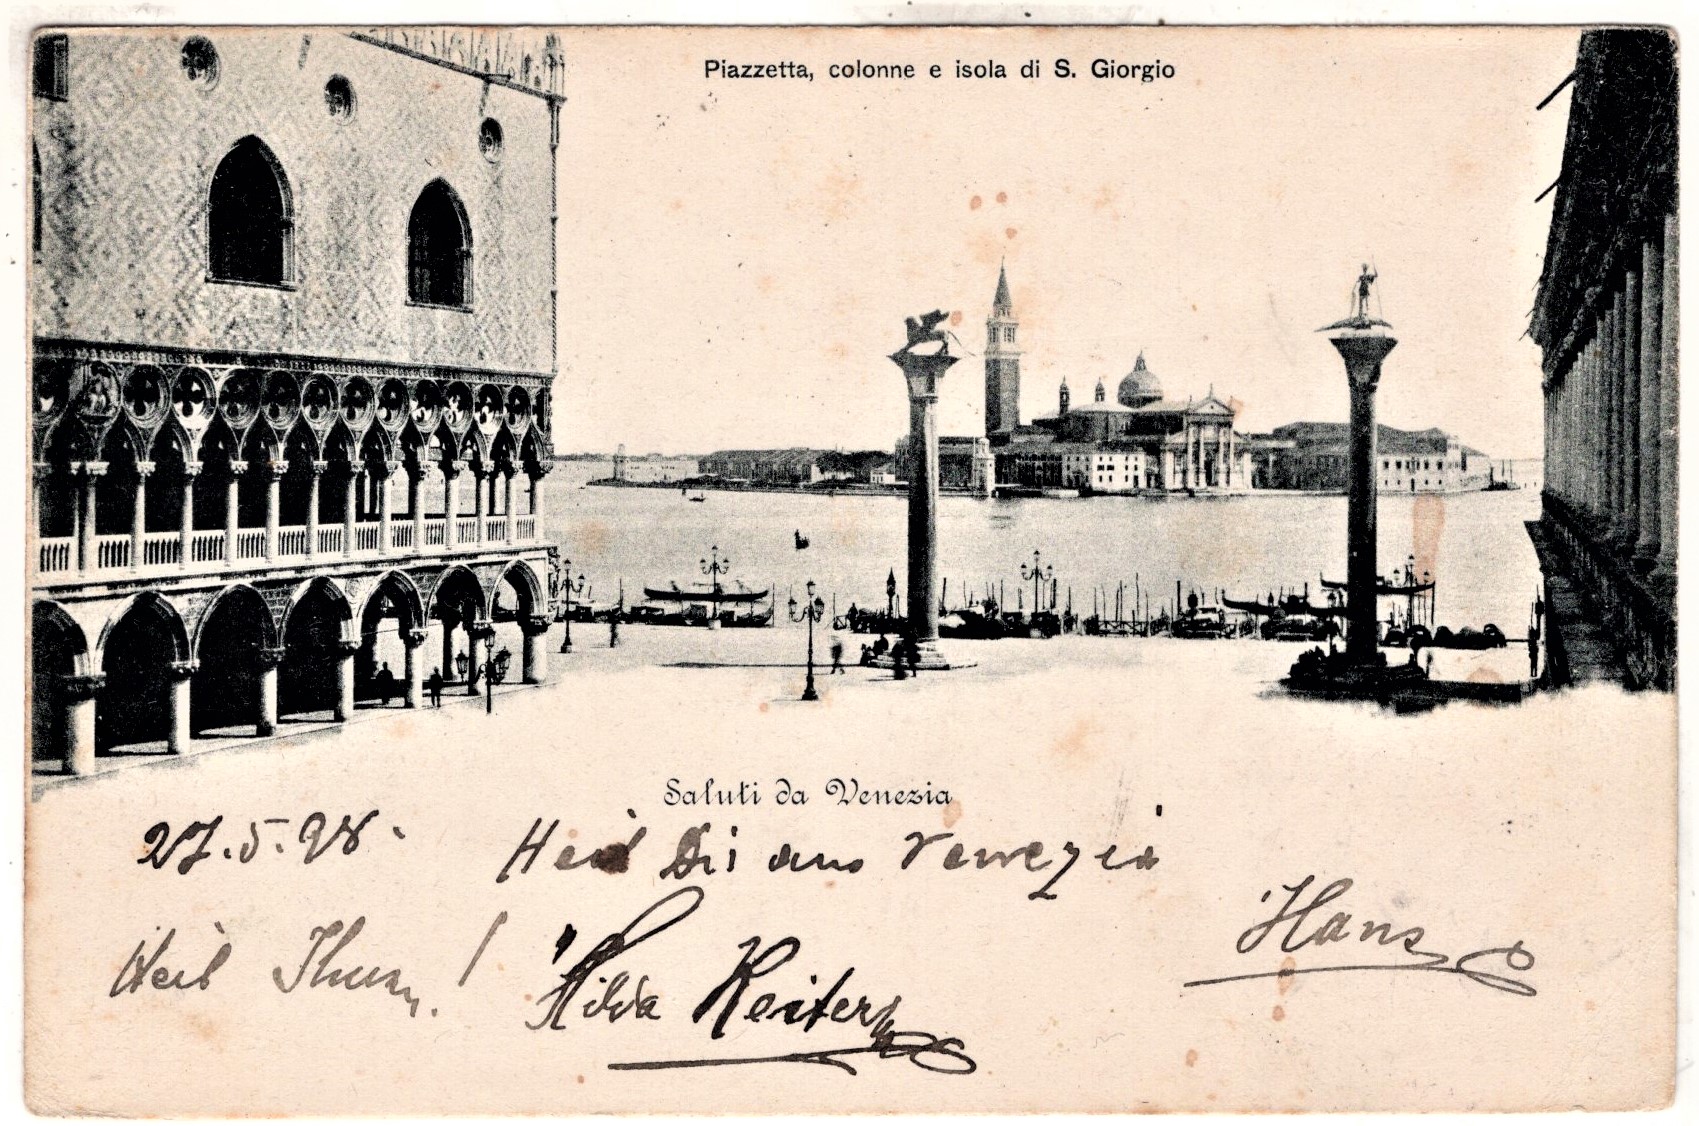 Piazzetta, colonne e isola di S. Giorgio
Saluti da Venezia
27.5.98.
Heil Dir aus Venezia
Hans
Heil Ihnen!
Hilda Reiterer